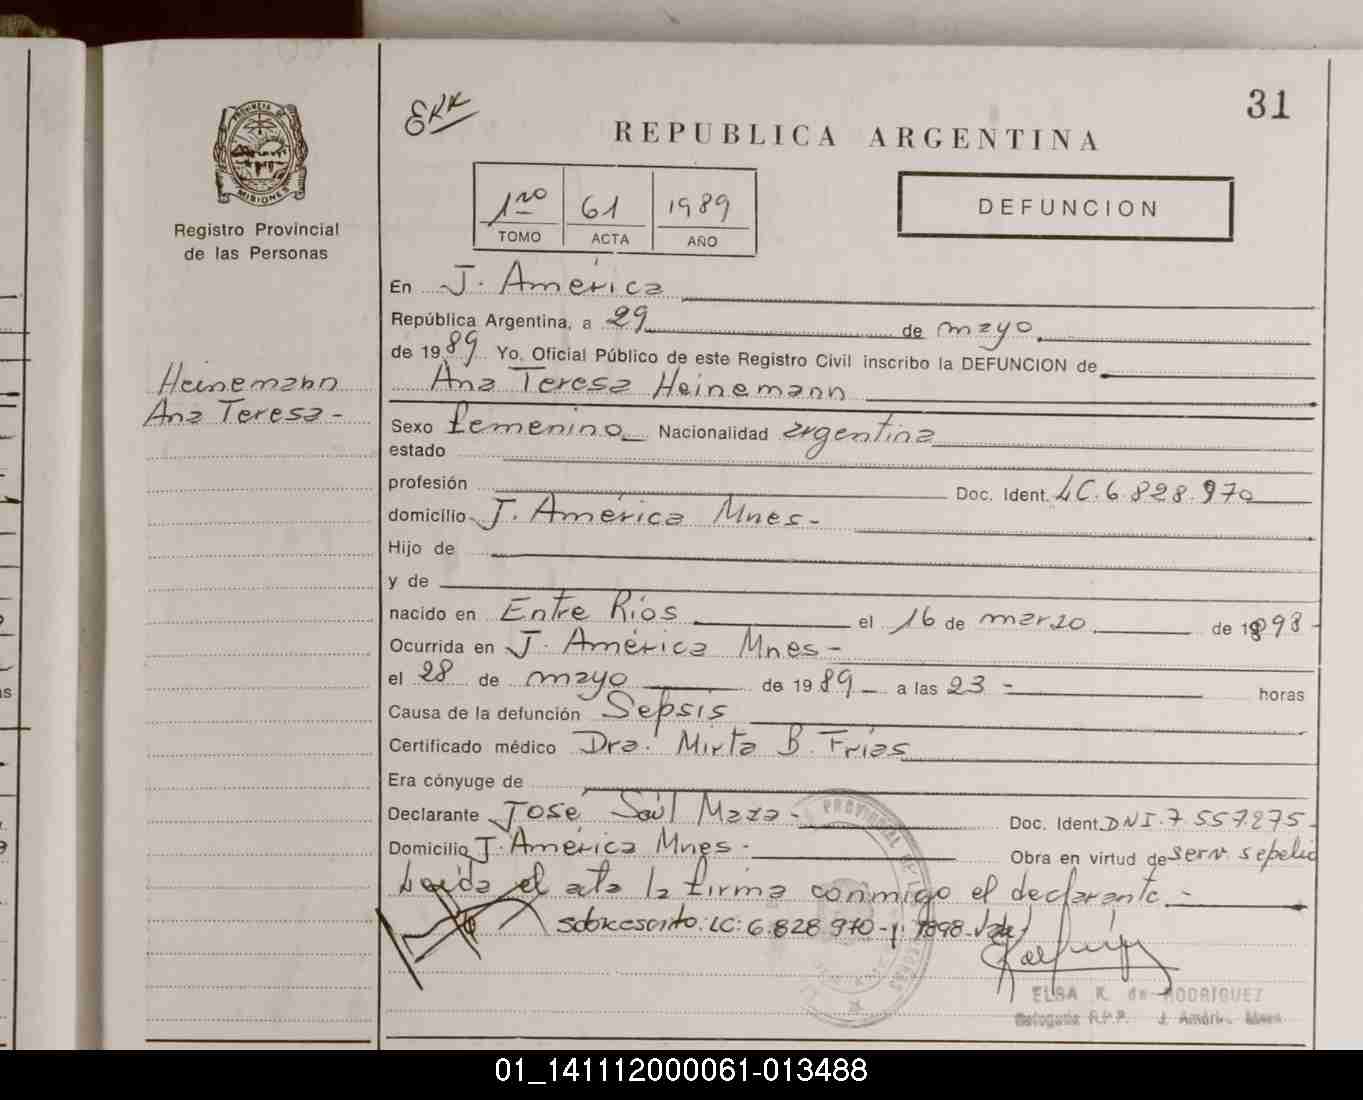 31
REPUBLICA ARGENTINA
PROVINCIA DE
MISIONES
Registro Provincial
de las Personas
1ro 61 1989
TOMO ACTA AÑO
DEFUNCION
Heinemann
Ana Teresa-
En J. América
República Argentina, a 29 de mayo
de 1989 Yo, Oficial Público de este Registro Civil inscribo la DEFUNCION de
Ana Teresa Heinemann
Sexo femenino Nacionalidad argentina
estado
profesión Doc. Ident. LC.6.828.970
domicilio J. América Mnes-
Hijo de
y de
nacido en Entre Ríos el 16 de marzo de 1898-
Ocurrida en J. América Mnes-
el 28 de mayo de 1989 a las 23- horas
Causa de la defunción Sepsis
Certificado médico Dra. Mirta B. Frías
Era cónyuge de
Declarante José Saúl Maza- Doc. Ident. DNI.7 557275-
Domicilio J. América Mnes- Obra en virtud de serv. sepelio
Leída el acta la firma conmigo el declarante.-
sobrescrito: LC: 6.828.970-y: 1898. Vale
ELBA R. de RODRIGUEZ
Delegada R.P.P. J. Améri. Mnes
01_141112000061-013488